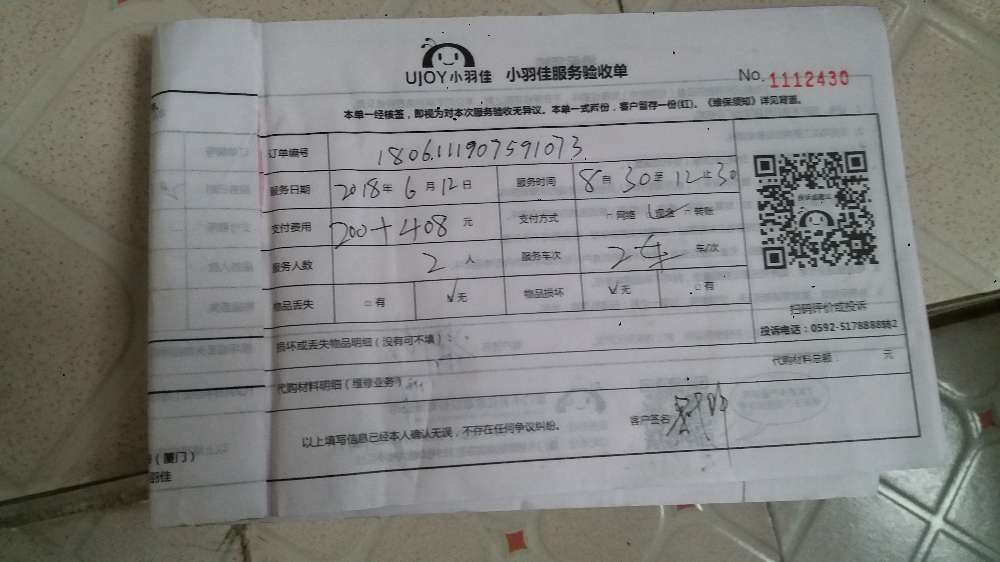 UJOY小羽佳 小羽佳服务验收单 No. 1112430
本单一经核签，即视为对本次服务验收无异议。本单一式两份，客户留存一份(红)。《维保须知》详见背面。
订单编号 1806111907591073
服务日期 2018年 6月 12日 服务时间 8时 30至 12止 30
支付费用 200+408 元 支付方式 □网络 现金 □转账
服务人数 2 人 服务车次 2车 车/次
物品丢失 □有 ✓无 物品损坏 ✓无 □有
扫码评价或投诉
投诉电话：0592-5178888转2
损坏或丢失物品明细（没有可不填）：
代购材料明细（维修业务） 代购材料总额： 元
以上填写信息已经本人确认无误，不存在任何争议纠纷。 客户签名
（厦门）
羽佳